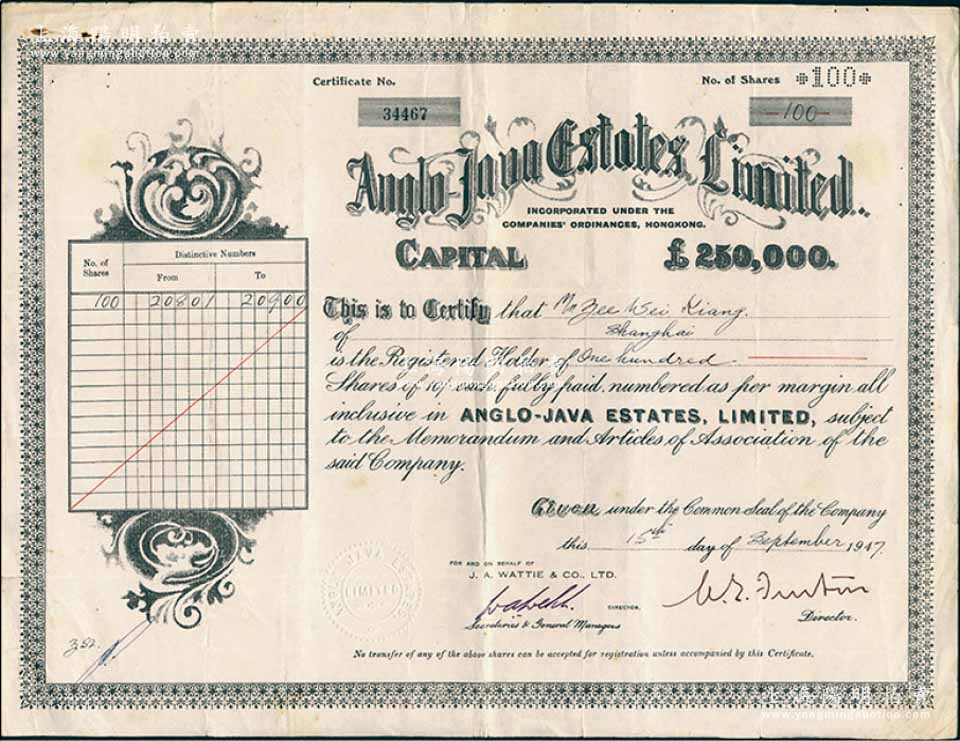 上海陽明拍賣
www.yangmingauction.com
Certificate No.
34467
No. of Shares *100*
100
Anglo-Java Estates, Limited.
INCORPORATED UNDER THE
COMPANIES' ORDINANCES, HONGKONG.
CAPITAL £250,000.
No. of Shares
Distinctive Numbers
From To
100 20801 20900
This is to Certify that Mr Zee Wei Kiang.
of Shanghai
is the Registered Holder of One hundred
Shares of each, fully paid, numbered as per margin all
inclusive in ANGLO-JAVA ESTATES, LIMITED, subject
to the Memorandum and Articles of Association of the
said Company.
Given under the Common Seal of the Company
this 15th day of September 1947.
FOR AND ON BEHALF OF
J. A. WATTIE & CO., LTD.
DIRECTOR.
Secretaries & General Managers
Director.
LIMITED
352.
No transfer of any of the above shares can be accepted for registration unless accompanied by this Certificate.
上海陽明拍賣
www.yangmingauction.com